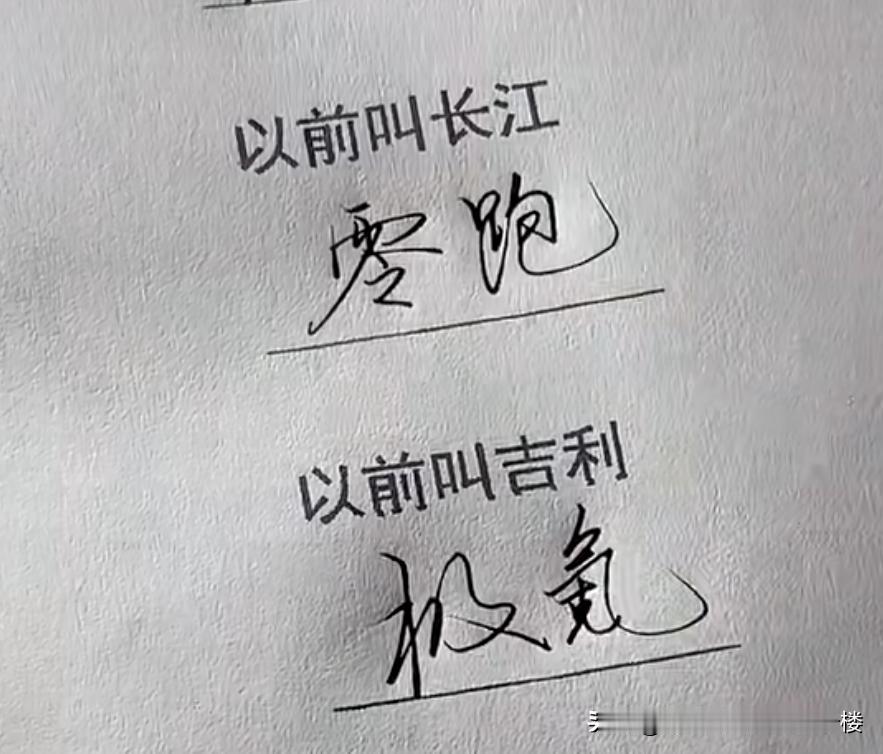 以前叫长江
零跑
以前叫吉利
极氪
楼